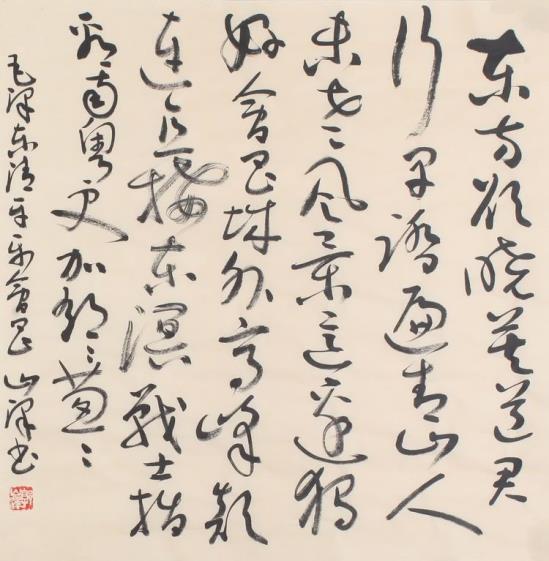 东方欲晓莫道君
行早踏遍青山人
未老风景这边独
好會昌城外高峰颠
連直接东溟戰士指
看南粤更加郁々葱々
毛泽东清平乐會昌 山泽书